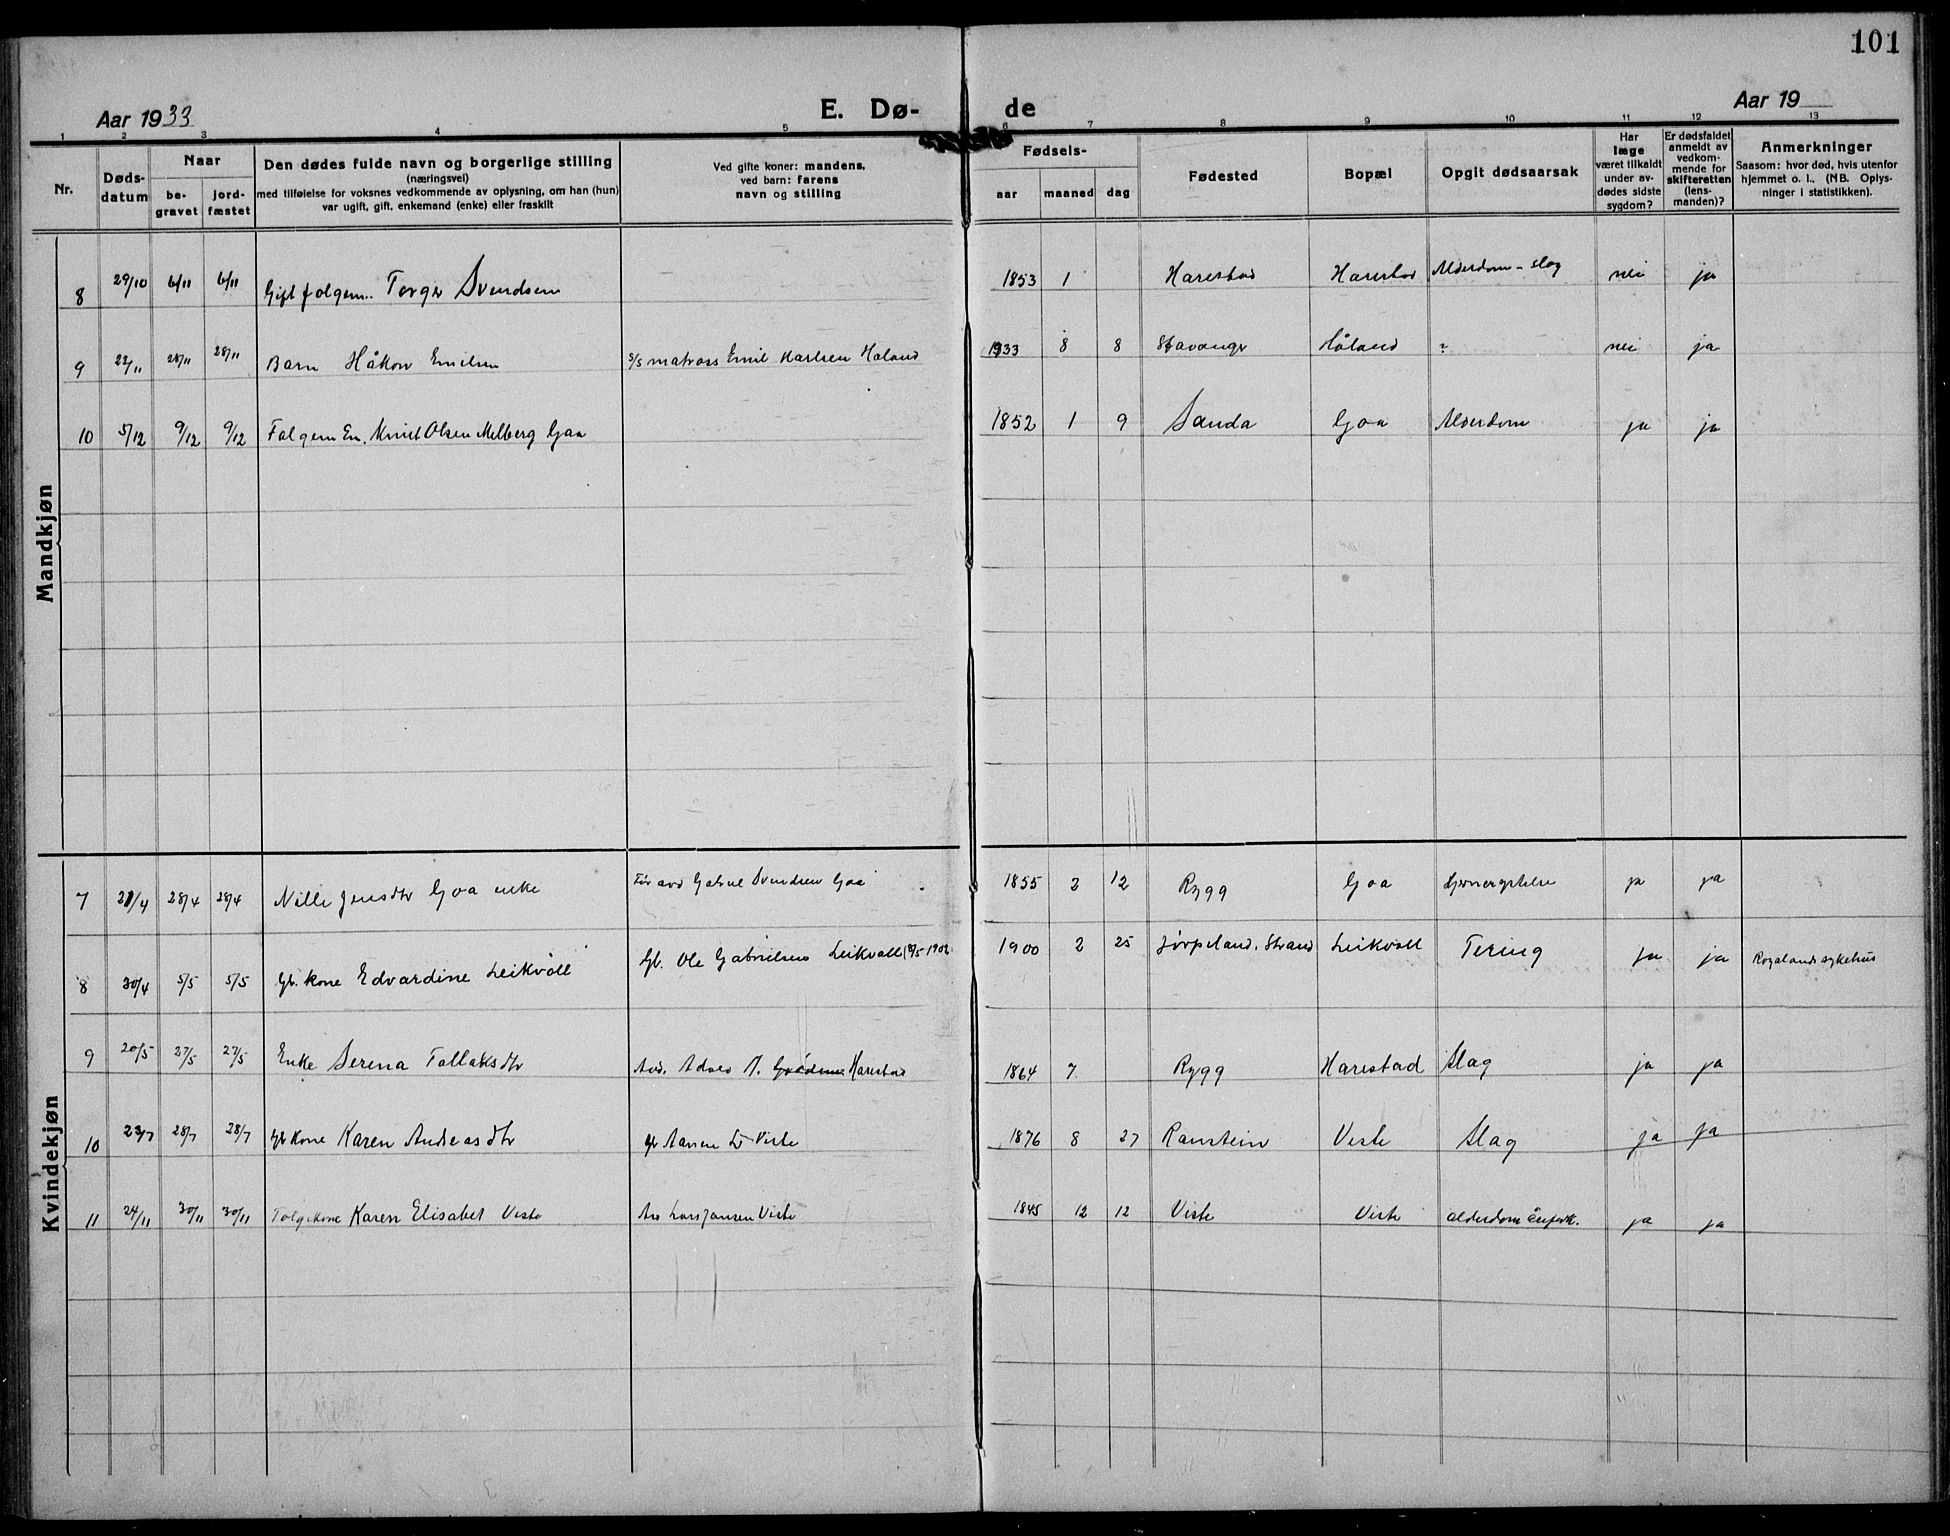 101
Aar 1933 E. Dø- de Aar 19
1 2 3 4 5 6 7 8 9 10 11 12 13
Nr. Døds-datum Naar be-gravet jord-fæstet Den dødes fulde navn og borgerlige stilling (næringsvei) med tilføielse for voksnes vedkommende av oplysning, om han (hun) var ugift, gift, enkemand (enke) eller fraskilt Ved gifte koner: mandens, ved barn: farens navn og stilling Fødsels- aar maaned dag Fødested Bopæl Opgit dødsaarsak Har læge været tilkaldt under av-dødes sidste sygdom? Er dødsfaldet anmeldt av vedkom-mende for skifteretten (lens-manden)? Anmerkninger Saasom: hvor død, hvis utenfor hjemmet o. l., (NB. Oplys-ninger i statistikken).
Mandkjøn
8 29/10 6/11 6/11 Gift folgem. Torger Svendsen 1853 1 Harestad Harestad Alderdom - slag nei ja
9 22/11 28/11 28/11 Barn Håkon Emilsen s/s matros Emil Karlsen Håland 1933 8 8 Stavanger Håland ? nei ja
10 5/12 9/12 9/12 Folgem En. Knut Olsen Melberg Goa 1852 1 9 Sauda Goa Alderdom ja ja
Kvindekjøn
7 21/4 28/4 28/4 Nille Jensdtr Goa enke Før avd Gabriel Svendsen Goa 1855 2 12 Rygg Goa Goa ja ja
8 30/4 5/5 5/5 Gb. kone Edvardine Leikvoll Gb. Ole Gabrielsen Leikvoll (8/5-1902) 1900 2 25 Jørpeland, Strand Leikvoll Tering ja ja Rogalands sykehus
9 20/5 27/5 27/5 Enke Serena Tollaksdtr Avd. 1864 7 Rygg Harestad Slag ja ja
10 23/7 28/7 28/7 Gb Kone Karen Andreasdtr Viste 1876 8 27 Ramstein Viste Slag ja ja
11 24/11 30/11 30/11 Folgekone Karen Elisabet Viste Lars Jansen Viste 1845 12 12 Viste Viste alderdom ja ja